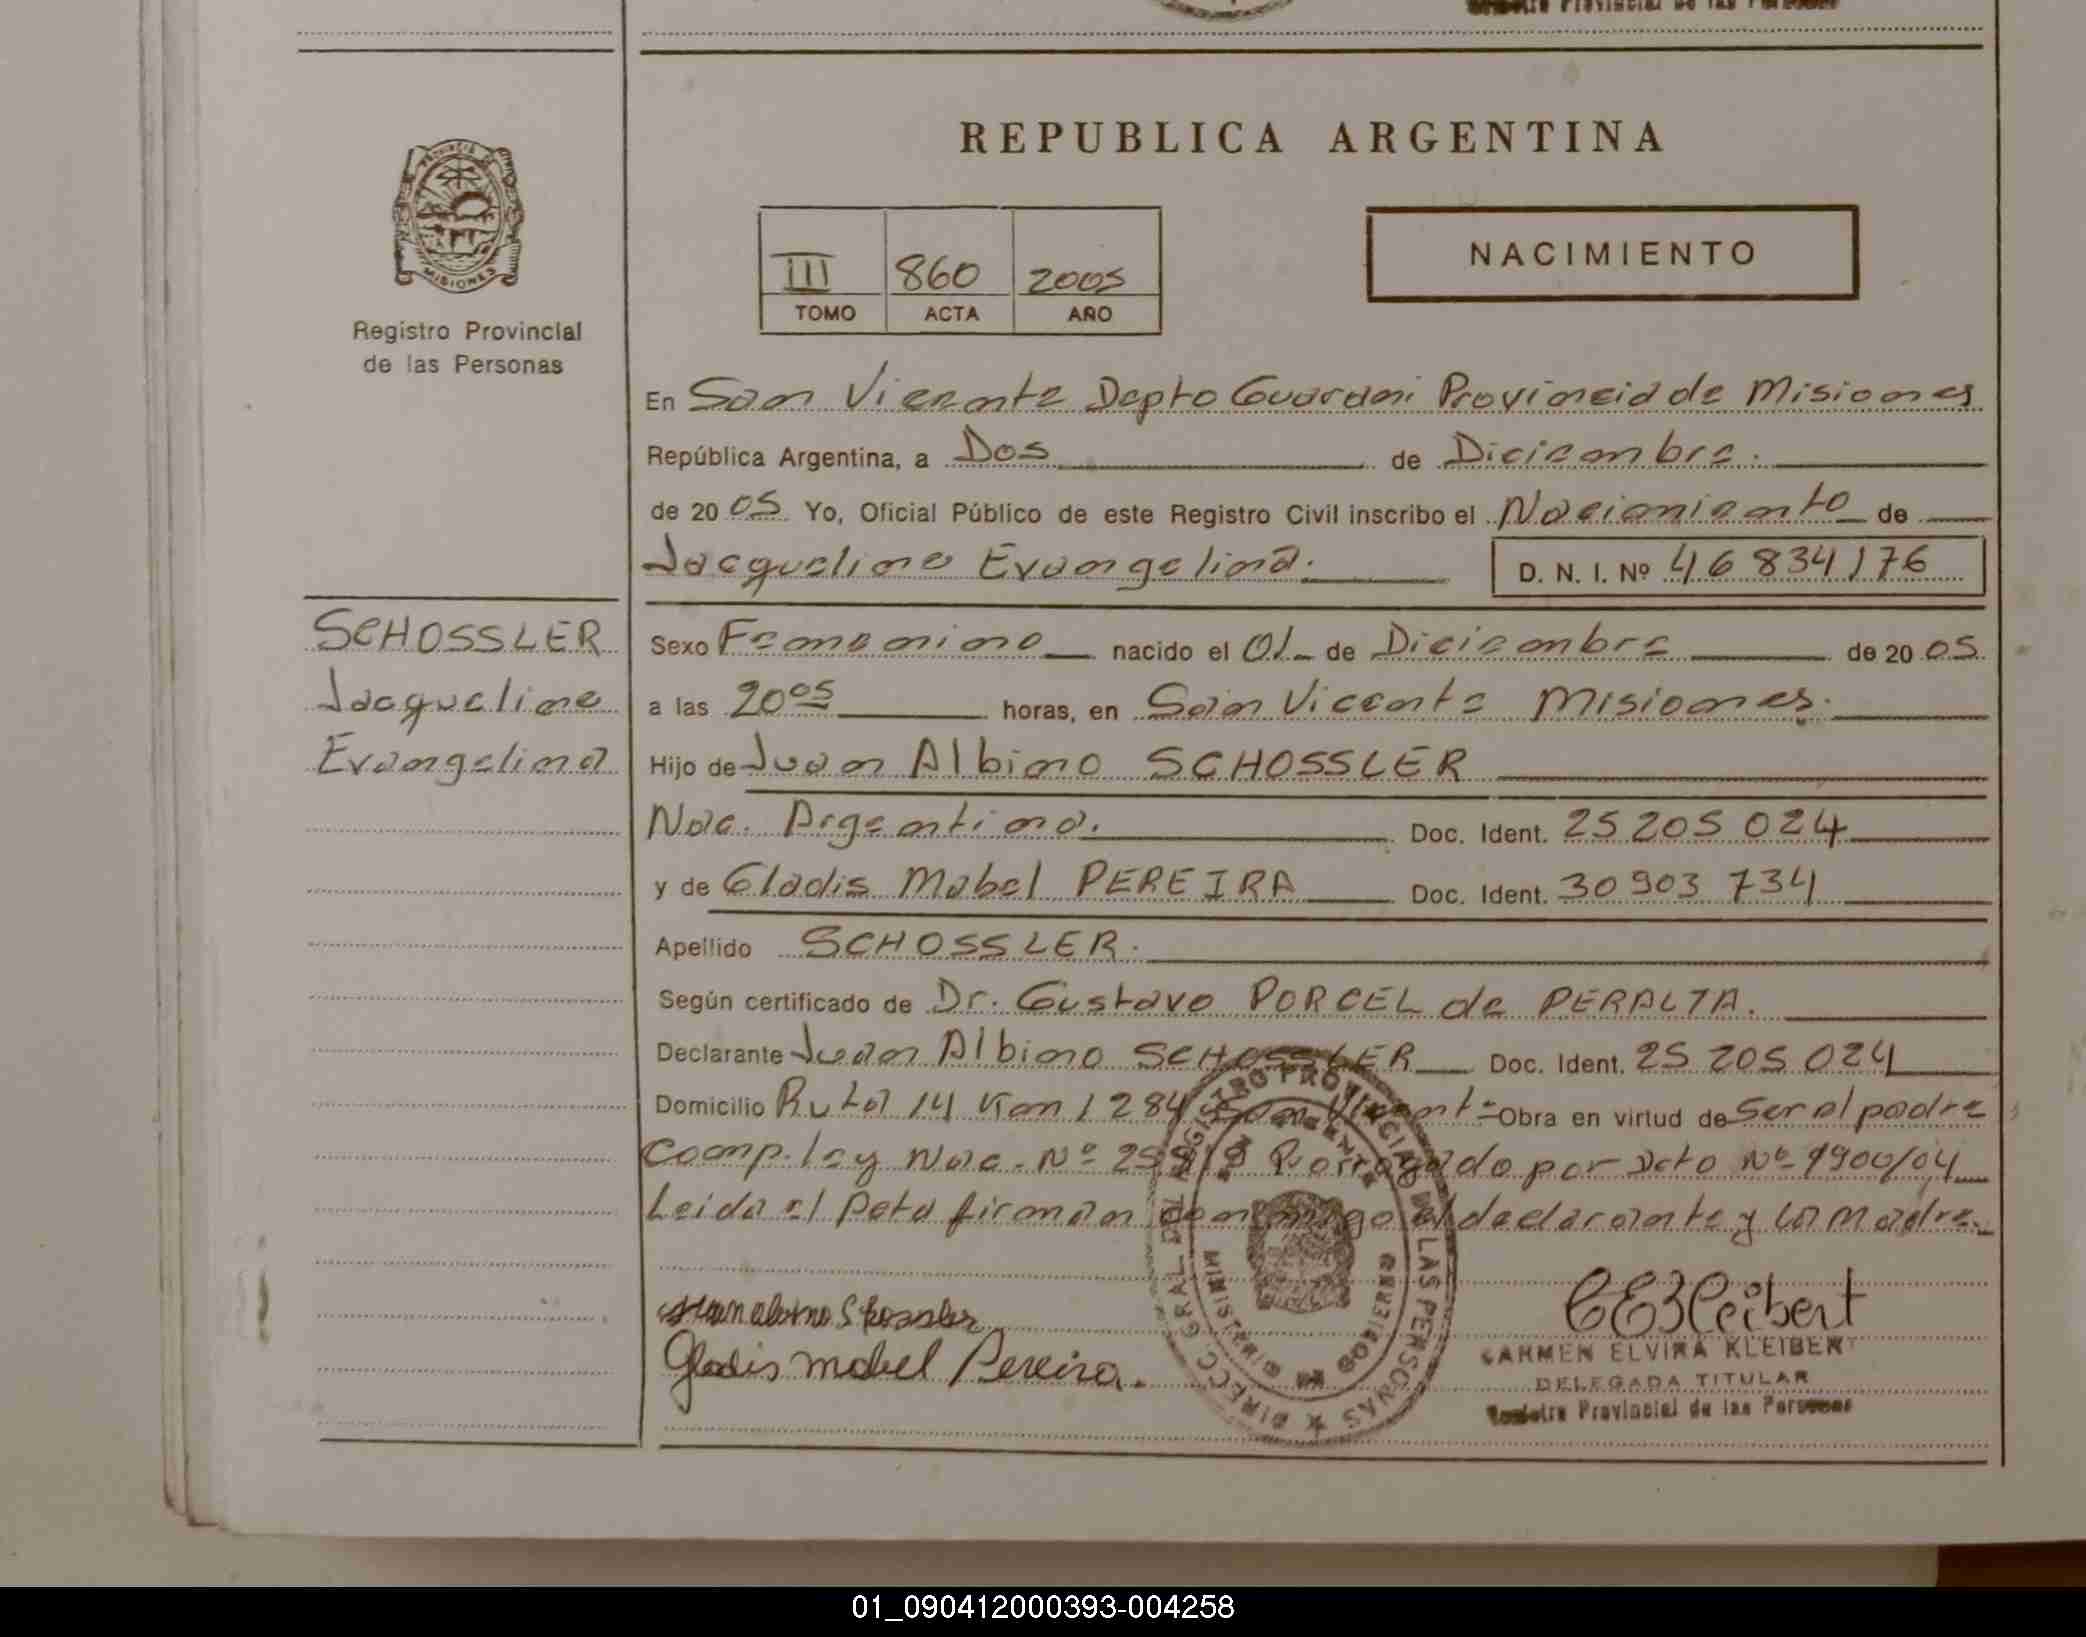 REPUBLICA ARGENTINA
NACIMIENTO
III 860 2005
TOMO ACTA AÑO
MISIONES
Registro Provincial
de las Personas
En San Vicente Depto Guarani Provincia de Misiones
República Argentina, a Dos de Diciembre.
de 20 05 Yo, Oficial Público de este Registro Civil inscribo el Nacimiento de
Jacqueline Evangelina. D. N. I. Nº 46834176
SCHOSSLER
Jacqueline
Evangelina
Sexo Femenino nacido el 01 de Diciembre de 20 05
a las 20 05 horas, en San Vicente Misiones.
Hijo de Juan Albino SCHOSSLER
Nac. Argentina. Doc. Ident. 25 205 024
y de Gladis Mabel PEREIRA Doc. Ident. 30 903 734
Apellido SCHOSSLER.
Según certificado de Dr. Gustavo PORCEL de PERALTA.
Declarante Juan Albino SCHOSSLER Doc. Ident. 25 205 024
Domicilio Ruta 14 Km 1284 San Vicente Obra en virtud de Ser el padre
Comp. ley Nac. Nº Prorrogado por Dcto Nº 1900/04
Leida el Acta firman conmigo el declarante y la madre.
DIREC. GRAL. DEL REGISTRO PROVINCIAL DE LAS PERSONAS
SAN VICENTE
MINISTERIO DE GOBIERNO
Gladis Mabel Pereira.
CEKleibert
CARMEN ELVIRA KLEIBERT
DELEGADA TITULAR
Registro Provincial de las Personas
01_090412000393-004258